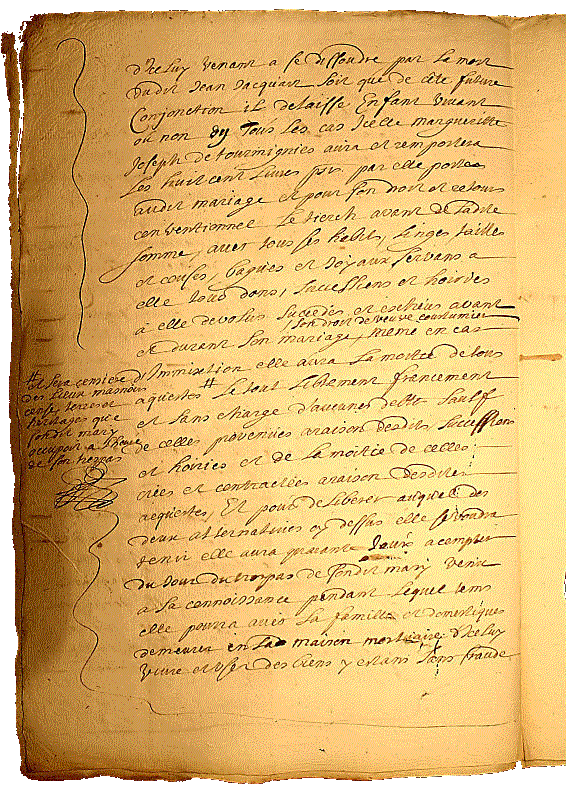 d'Iceluy venant a se dissoudre par la mort
dudit Jean Jacquart soit que de cete future
Conjonction il delaisse Enfant vivant
ou non En Tous les cas Icelle marguerite
Joseph de tourmignies aura et remportera
Les huit cent livres par elle portes
audit mariage et pour son droit et retour
conventionnel Le tierch avant de ladite
somme, avec tous ses habits, Linges tailles
et couses, bagues et Joyaux servans a
elle tous dons, successions et hoiries
a elle devolus succedes et escheus avant
et durant son mariage, son droit de veuve coutumier, meme en cas
d'Immixtion elle aura La moitie de tous
aquestes # Le tout Librement franchement
et sans charge d'aucunes debtes saulf
de celles provenues a raison desdits successions
et hoiries et de La moitie de celles
crées et contractées a raison desdites
acquestes, Et pour deliberer auquel des
deux alternatives cy dessus elle se voudra
tenir elle aura quarante Jours a compter
du Jour du trespas de sondit mary venu
a sa connoissance pendant Lequel tems
elle pourra avec sa famille et domestiques
demeurer en La maison mortuaire d'Iceluy
vivre et user des biens y estans sans fraude
# et sera censiere
des Lieux manoirs
cense, terres et
heritages que
sondit mary
occupoit a l'heure
de son trespas